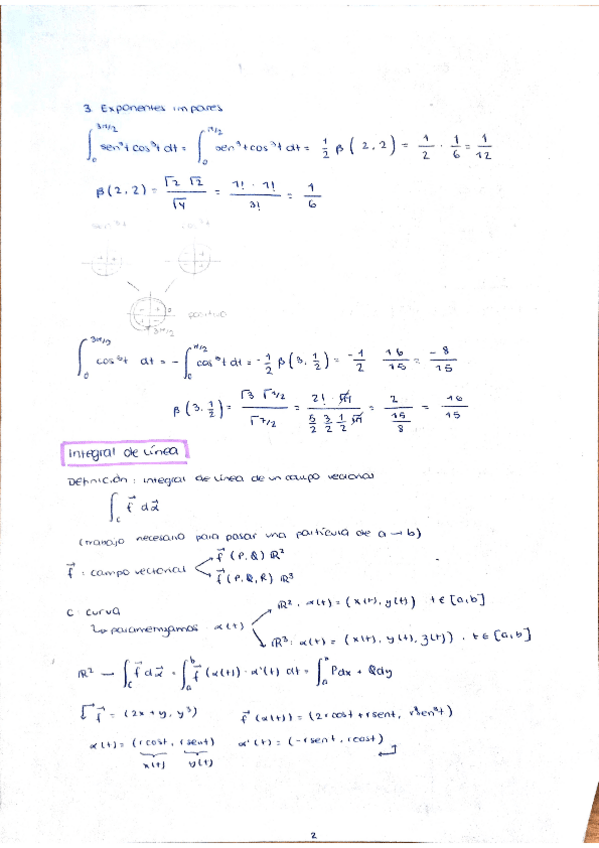 3. Exponentes impares
∫₀^{3π/2} sen³t cos³t dt = ∫₀^{π/2} sen³t cos³t dt = 1/2 β(2,2) = 1/2 · 1/6 = 1/12
β(2,2) = Γ2 Γ2 / Γ4 = 1! · 1! / 3! = 1/6
positivo
3π/2
∫₀^{3π/2} cos⁵t dt = - ∫₀^{π/2} cos⁵t dt = -1/2 β(3, 1/2) = -1/2 16/15 = -8/15
β(3, 1/2) = Γ3 Γ1/2 / Γ7/2 = 2! · √π / (5/2 3/2 1/2 √π) = 2 / (15/8) = 16/15
Integral de línea
Definición: integral de línea de un campo vectorial
∫_c f⃗ dα⃗
(trabajo necesario para pasar una partícula de a → b)
f⃗ (P,Q) ℝ²
f⃗ : campo vectorial
f⃗ (P,Q,R) ℝ³
C: curva
ℝ²: α(t) = (x(t), y(t)) t ∈ [a,b]
↳ parametrizamos α(t)
ℝ³: α(t) = (x(t), y(t), z(t)). t ∈ [a,b]
ℝ² — ∫_c f⃗ dα⃗ = ∫_a^b f⃗ (α(t)) · α'(t) dt = ∫_a^b Pdx + Qdy
f⃗ = (2x+y, y³) f⃗ (α(t)) = (2rcost + rsent, r³sen³t)
α(t) = (rcost, rsent) α'(t) = (-rsent, rcost)
x(t) y(t)
2